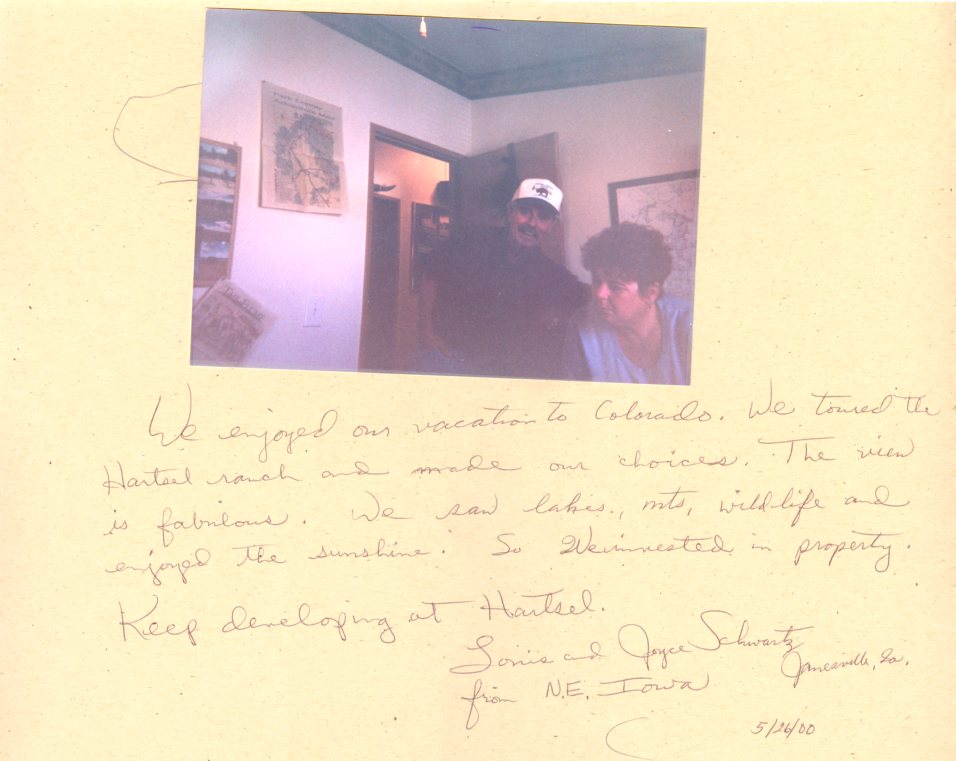 We enjoyed our vacation to Colorado. We toured the
Hartsel ranch and made our choices. The view
is fabulous. We saw lakes, mts, wildlife and
enjoyed the sunshine. So We invested in property.
Keep developing at Hartsel.
and Joyce Schwartz
Janesville, Ia.
from N.E. Iowa
5/26/00